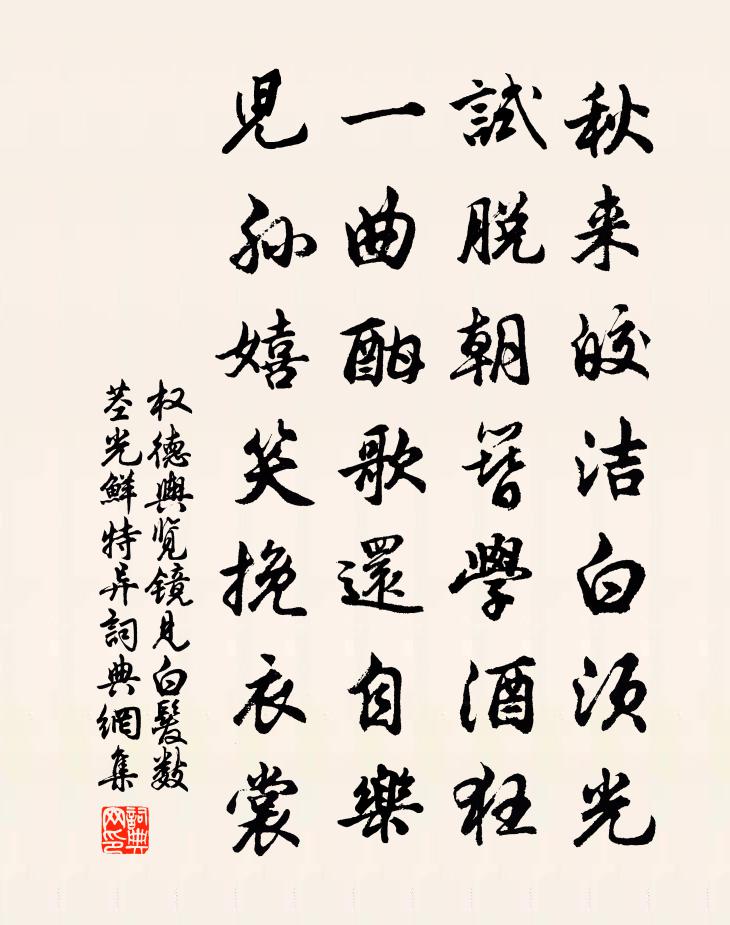 秋来皎洁白须光
試脱朝簪學酒狂
一曲酣歌還自樂
児孫嬉笑挽衣裳
权德輿览镜見白髮数
茎光鮮特异詞典網集
詞典
网印